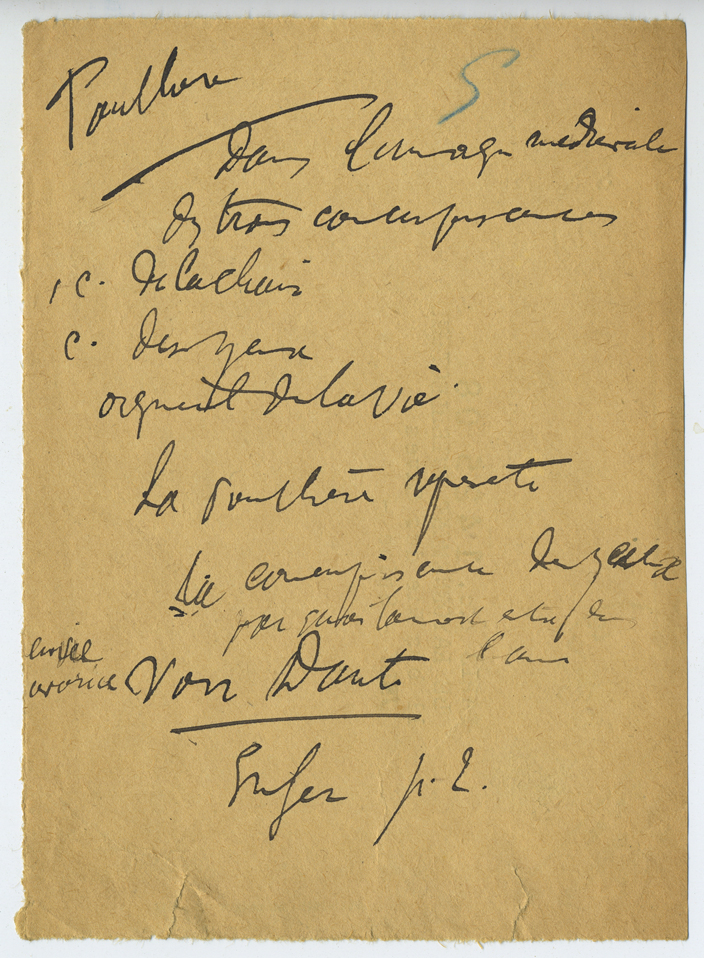 Panthère
5
Dans l'image médiévale
des trois concupiscences
1 c. de la chair
c. des yeux
orgueil de la vie.
La panthère représente
la concupiscence des yeux
par quoi la mort est
l'âme
envie
avarice
Voir Dante
Enfer p. 2.